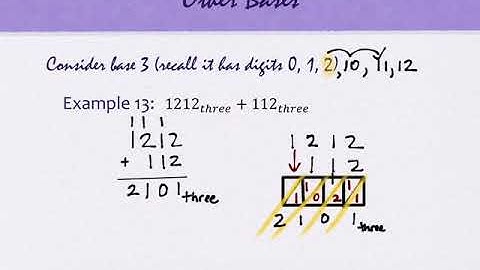 Other Bases
Consider base 3 (recall it has digits 0, 1, 2), 10, 11, 12
Example 13: 1212three + 112three
1 1 1
1212
+ 112
2101three
1 2 1 2
1 1 2
1 1 0 1 2 1 1
2 1 0 1 three